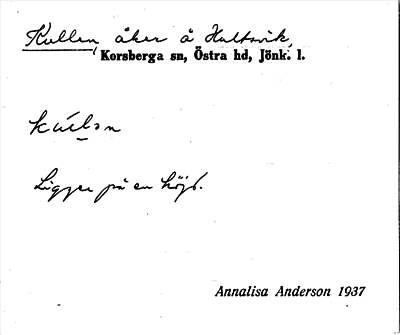 Kullen, åker å Hultsvik,
Korsberga sn, Östra hd, Jönk. l.
Ligger på en höjd.
Annalisa Anderson 1937